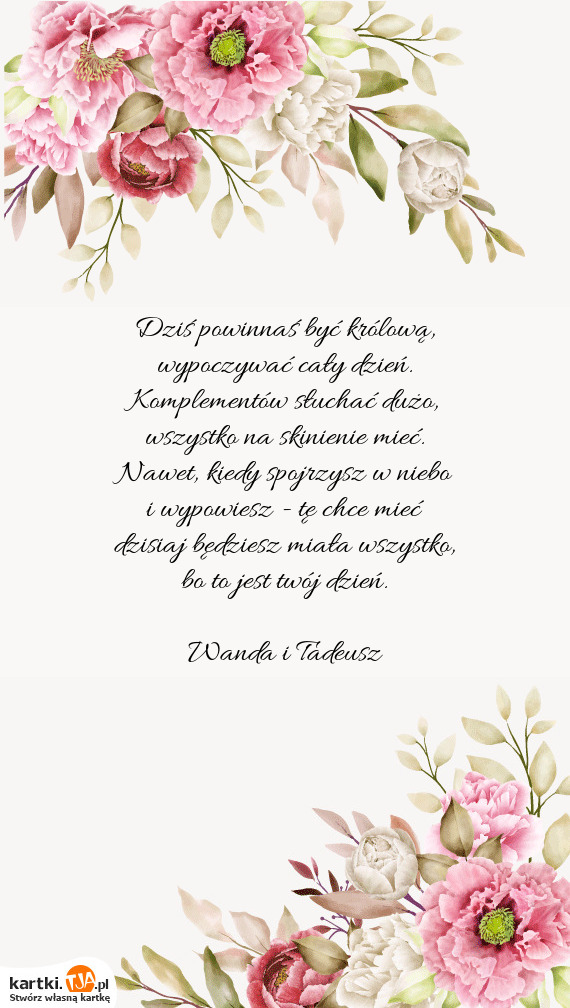 Dziś powinnaś być królową,
wypoczywać cały dzień.
Komplementów słuchać dużo,
wszystko na skinienie mieć.
Nawet, kiedy spojrzysz w niebo
i wypowiesz - tę chce mieć
dzisiaj będziesz miała wszystko,
bo to jest twój dzień.
Wanda i Tadeusz
kartki.TJA.pl
Stwórz własną kartkę